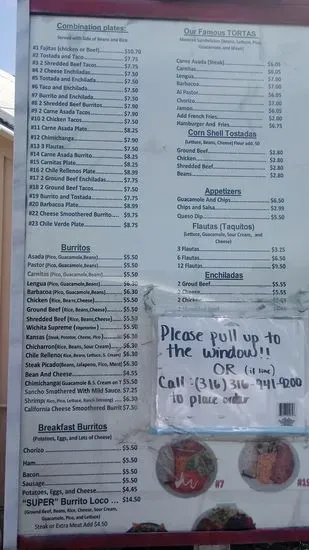 Combination plates:
Served with Side of Beans and Rice
#1 Fajitas (chicken or Beef) $10.70
#2 Tostada and Taco $7.75
#3 2 Shredded Beef Tacos $7.75
#4 2 Cheese Enchiladas $7.50
#5 Tostada and Enchilada $7.50
#6 Taco and Enchilada $7.50
#7 Burrito and Enchilada
#8 2 Shredded Beef Burritos $7.00
#9 2 Carne Asada Tacos $7.90
#10 2 Chicken Tacos $7.50
#11 Carne Asada Plate $8.25
#12 Chimichanga $7.90
#13 3 Flautas $7.50
#14 Carne Asada Burrito $8.25
#15 Carnitas Plate $8.25
#16 2 Chile Rellenos Plate $8.99
#17 2 Ground Beef Enchiladas $7.75
#18 2 Ground Beef Tacos $7.50
#19 Burrito and Tostada $7.75
#20 Barbacoa Plate $8.99
#22 Cheese Smothered Burrito $9.75
#23 Chile Verde Plate $8.75
Burritos
Asada (Pico, Guacamole, Beans) $5.50
Pastor (Pico, Guacamole, Beans) $5.50
Carnitas (Pico, Guacamole, Beans) $5.50
Lengua (Pico, Guacamole, Beans) $6.30
Barbacoa (Pico, Guacamole, Beans) $6.30
Chicken (Rice, Beans, Cheese) $5.50
Ground Beef (Rice, Beans, Cheese) $5.50
Shredded Beef (Rice, Beans, Cheese) $5.50
Wichita Supreme (Vegetarian) $5.50
Kansas (Steak, Potatoe, Cheese, Pico) $5.50
Chicharron (Rice, Beans, Sour Cream) $6.30
Chile Relleno (Rice, Beans, Lettuce, S. Cream) $6.30
Steak Picado (Beans, Jalapeno, Pico, Meat) $6.30
Bean And Cheese $4.55
Chimichanga (Guacamole & S. Cream on T $5.50
Sancho Smothered With Mild Sauce $7.25
Shrimp (Rice, Pico, Lettuce, Ranch Dressing) $6.30
California Cheese Smothered Burrit $7.50
Breakfast Burritos
(Potatoes, Eggs, and Lots of Cheese)
Chorizo $5.50
Ham $5.50
Bacon $5.50
Sausage $5.50
Potatoes, Eggs, and Cheese $4.45
"SUPER" Burrito Loco $14.50
(Ground Beef, Beans, Rice, Cheese, Sour Cream,
Guacamole, Pico, and Lettuce)
Steak or Extra Meat Add $4.50
Our Famous TORTAS
Mexican Sandwiches (Beans, Lettuce, Pico,
Guacamole, and Meat)
Carne Asada (Steak) $6.05
Carnitas $6.05
Lengua $7.00
Barbacoa $7.00
Al Pastor $6.05
Chorizo $7.00
Jamon $6.05
Add French Fries $2.00
Hamburger And Fries $6.75
Corn Shell Tostadas
(Lettuce, Beans, Cheese) Flour add .50
Ground Beef $2.80
Chicken $2.80
Shredded Beef $2.80
Beans $2.80
Appetizers
Guacamole And Chips $6.50
Chips and Salsa $2.99
Queso Dip $5.50
Flautas (Taquitos)
(Lettuce, Guacamole, Sour Cream, and
Cheese)
3 Flautas $3.25
6 Flautas $6.50
12 Flautas $9.50
Enchiladas
2 Groud Beef $5.55
2 Cheese $5.55
Please pull up to
the window!!
OR (if line)
Call: (316) 316-941-9200
to place order
#7